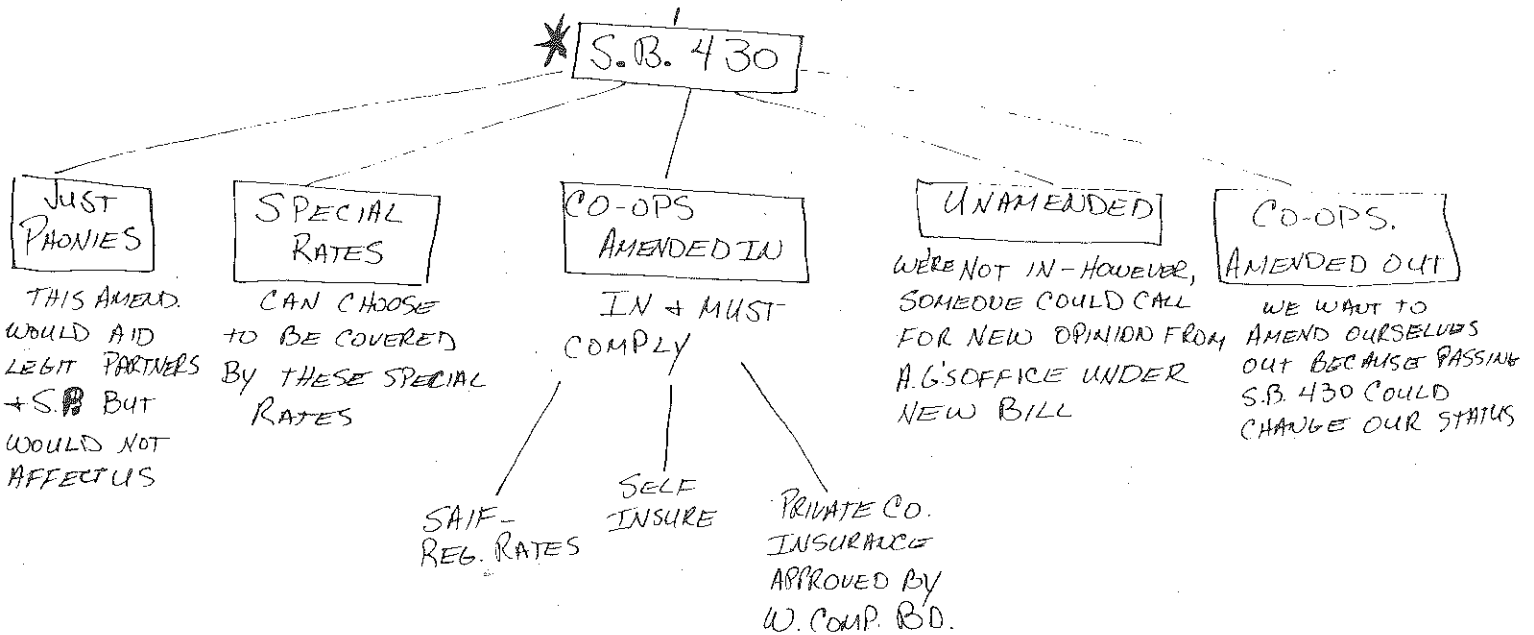 S.B. 430
JUST
PHONIES
THIS AMEND.
WOULD AID
LEGIT PARTNERS
+ S.P. BUT
WOULD NOT
AFFECT US
SPECIAL
RATES
CAN CHOOSE
TO BE COVERED
BY THESE SPECIAL
RATES
CO-OPS
AMENDED IN
IN + MUST
COMPLY
SAIF-
REG. RATES
SELF
INSURE
PRIVATE CO.
INSURANCE
APPROVED BY
W. COMP. BD.
UNAMENDED
WERE NOT IN - HOWEVER,
SOMEONE COULD CALL
FOR NEW OPINION FROM
A.G'S OFFICE UNDER
NEW BILL
CO-OPS.
AMENDED OUT
WE WANT TO
AMEND OURSELVES
OUT BECAUSE PASSING
S.B. 430 COULD
CHANGE OUR STATUS